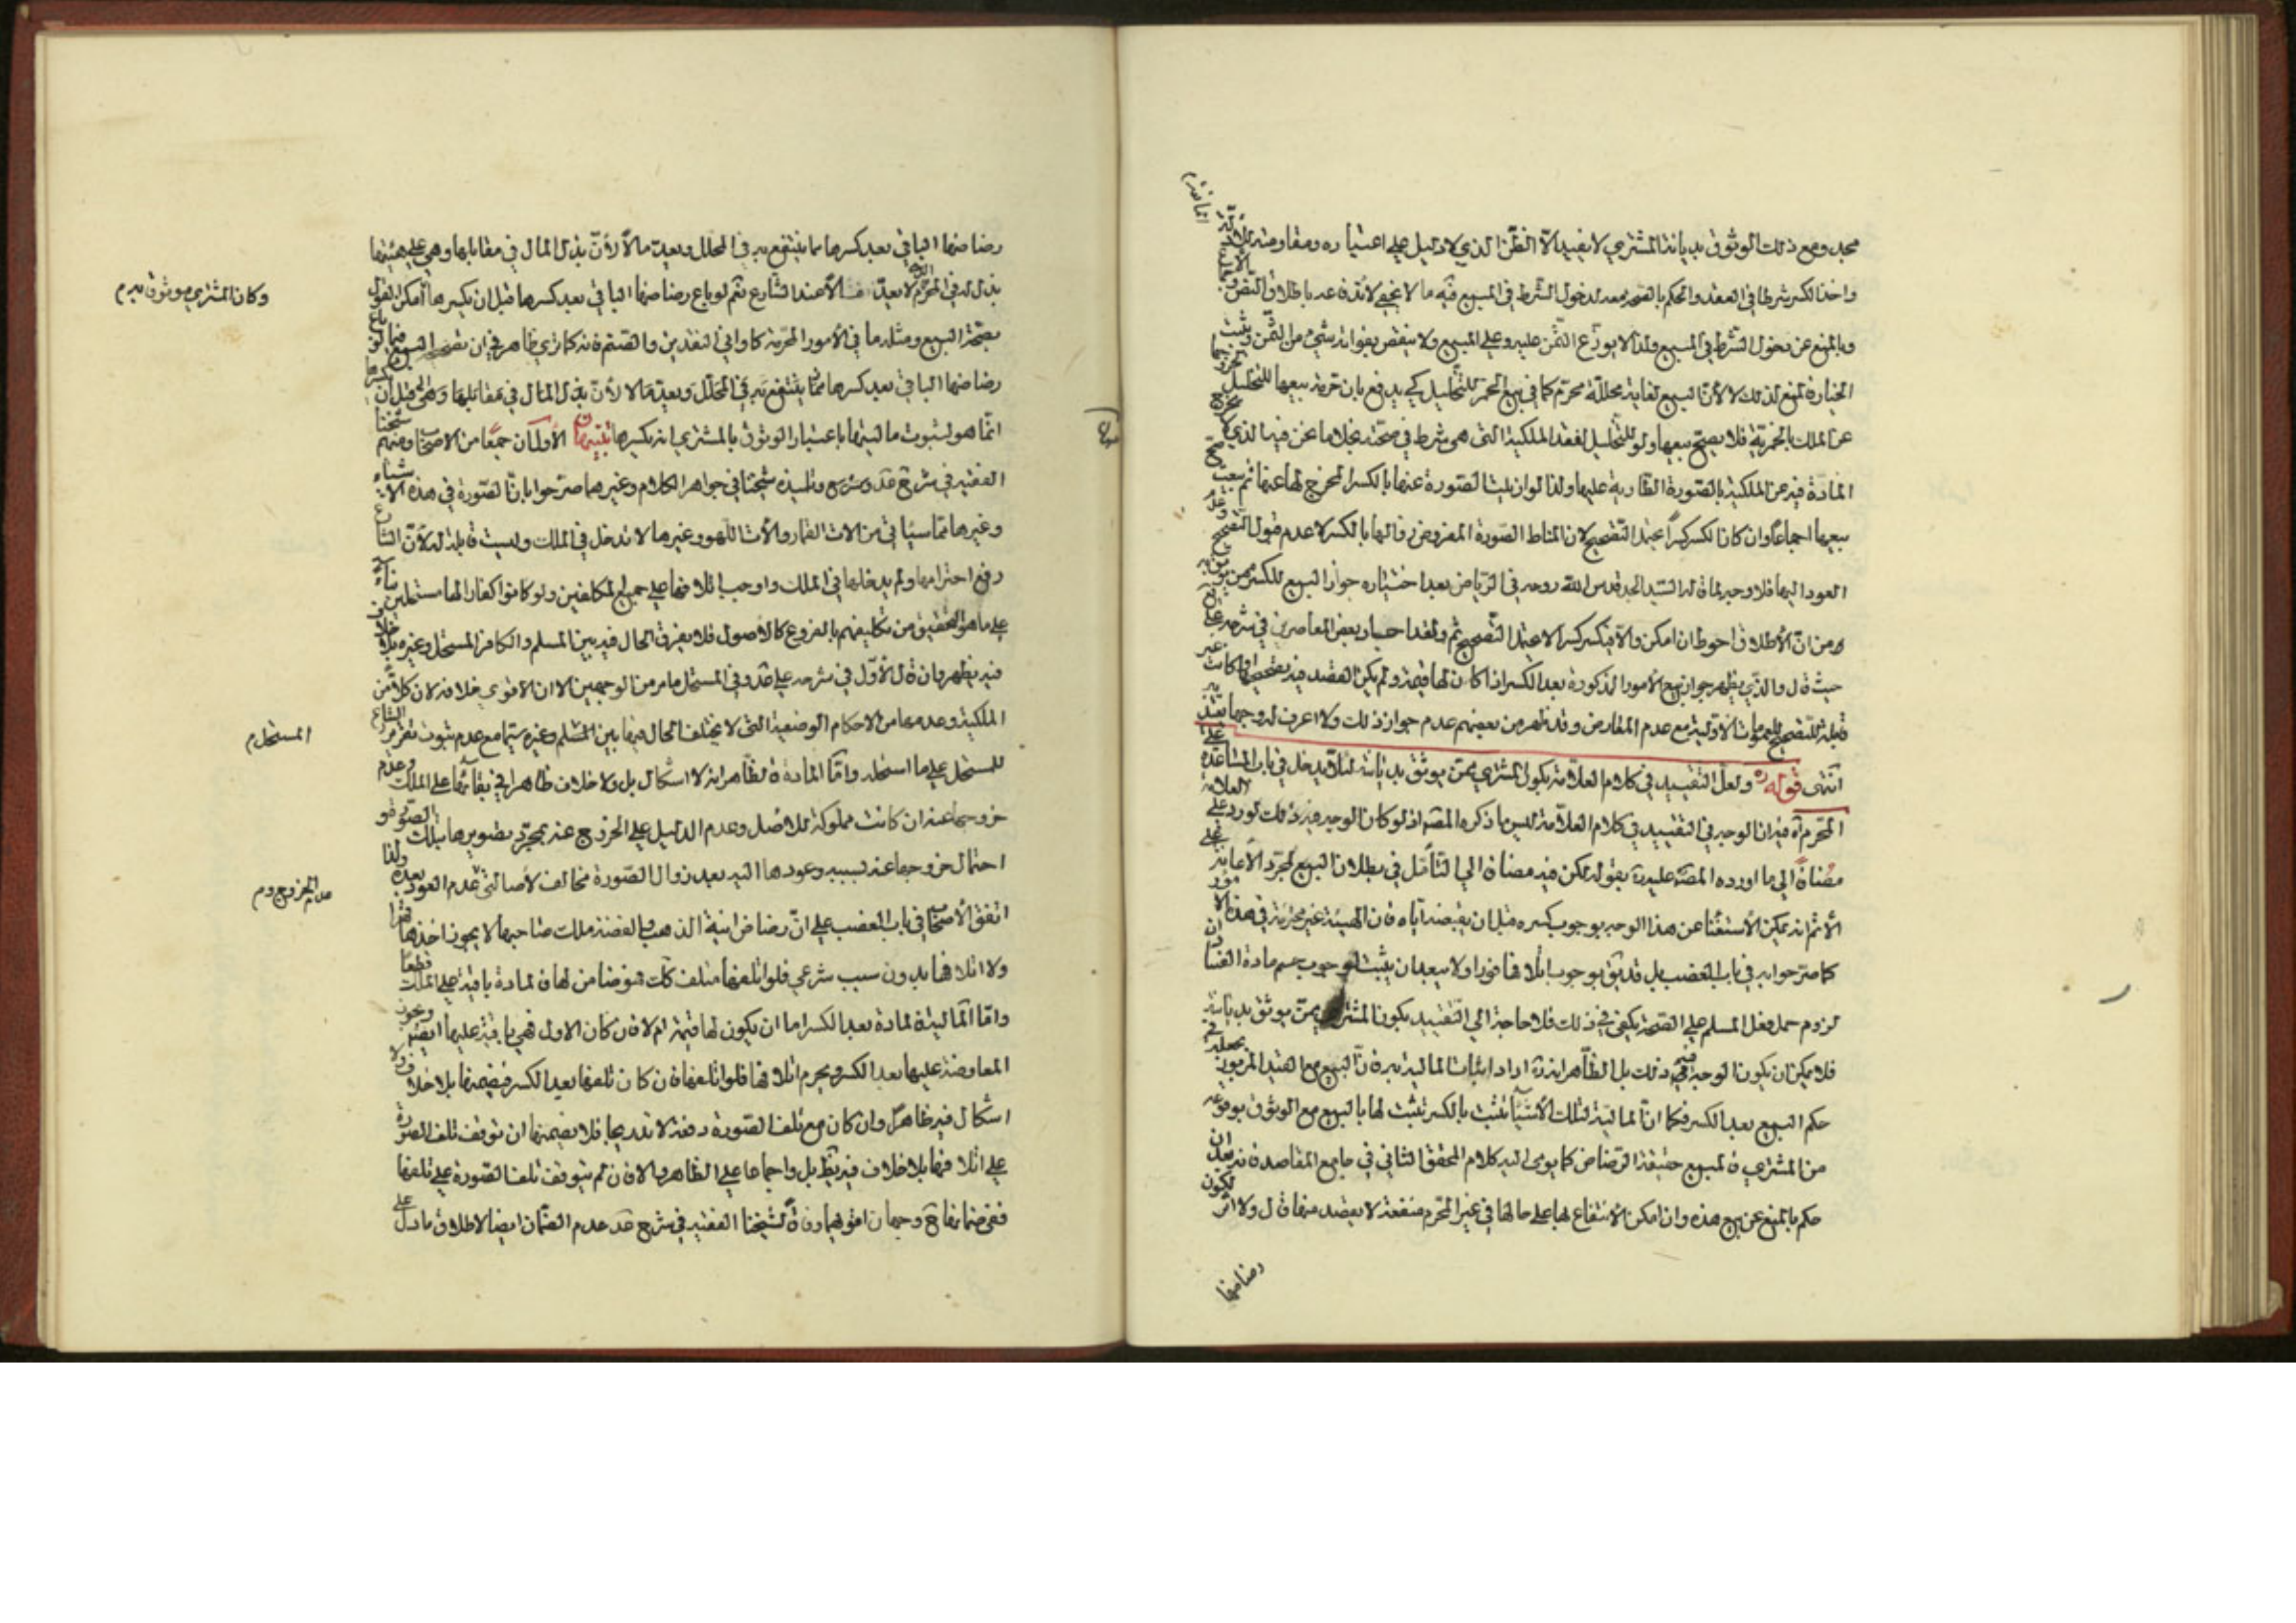 مجد ومع ذلك الوثوق بديانة المشتري لا يفيد الا الظن الذي لا دليل على اعتباره ومقاومته للادلة
واخذ الكسر شرطا في العقد والحكم بالصحة معه لدخول الشرط في المبيع فيه ما لا يخفى لاندفاعه باطلاق النص
وبالمنع عن دخول الشرط في المبيع ولذا لا يوزع الثمن عليه وعلى المبيع ولا ينقص بفواته شيء من الثمن ويثبت
الخيار فالمنع لذلك لا لأن البيع لغاية محللة محرم كما في بيع الخمر للتخليل كي يدفع بان حرمة بيعها للتخليل
عن الملك بالخمرية فلا يصح بيعها ولو للتخليل لفقد الملكية التي هي شرط في صحته بخلاف ما نحن فيه الذي لا
المادة فيه عن الملكية بالصورة الطارية عليها ولذا لو ازيلت الصورة عنها بالكسر المخرج لها عنها ثم بيعت صح
بيعها اجماعا وان كان الكسر كسرا يمتد التصحيح لان المناط الصورة المفروض زوالها بالكسر لا عدم قبول التصحيح
العود اليها فلا وجه لما قاله السيد الجد قدس الله روحه في الرياض بعد اختياره جواز البيع للكسر ممن يوثق به
من ان الاطلاق احوط ان امكن والا فيكسر كسرا لا يمتد التصحيح ثم ولقد اجاد بعض المعاصرين في شرحه
حيث قال والذي يظهر جواز بيع الامور المذكورة بعد الكسر اذا كان لها قيمة ولم يكن القصد فيه بفحصها وان كانت غير
قابلة للتصحيح للعمومات الاولية مع عدم المعارض وقد يظهر من بعضهم عدم جواز ذلك ولا اعرف له وجها يعتد به
انتهى قوله ولعل التقييد في كلام العلامة بكون المشتري ممن يوثق بديانته لئلا يدخل في باب المساعدة على
المحرم اه فيه ان الوجه في التقييد في كلام العلامة ليس ما ذكره المصنف اذ لو كان الوجه فيه ذلك لورد على العلامة
مضافا الى ما اورده المصنف عليه بقوله لكن فيه مضافا الى التأمل في بطلان البيع لمجرد الاعانة على
الاثم انه يمكن الاستغناء عن هذا الوجه بوجوب كسره قبل ان يقبضه اياه فان الهيئة غير محترمة في هذه الامور
كما صرحوا به في باب الغصب بل قد يق بوجوب اتلافها فورا ولا يبعد ان يثبت لوجوب حسم مادة الفساد
لزوم حمل فعل المسلم على الصحة يكفي في ذلك فلا حاجة الى التقييد بكون المشتري ممن يوثق بديانته
فلا يمكن ان يكون الوجه فيه ذلك بل الظاهر انه اراد اثبات المالية به فان البيع مع القيد المزبور بجعله في
حكم البيع بعد الكسر فكما ان المالية لتلك الاشياء تثبت بالكسر تثبت لها بالبيع مع الوثوق بوقوعه
من المشتري فالمبيع حقيقة الرضاض كما يومي اليه كلام المحقق الثاني في جامع المقاصد فانه بعد ان
حكم بالمنع عن بيع هذه وان امكن الانتفاع بها على حالها في غير المحرم منفعة لا يقصد منها قال ولا اثر لكون
رضاضها
رضاضها الباقي بعد كسرها مما ينتفع به في المحلل ويعد مالا لأن بذل المال في مقابلها وهي على هيئتها
بذل له في المحرم الذي لا يعد مالا عند الشارع نعم لو باع رضاضها الباقي بعد كسرها قبل ان يكسرها امكن القول
وكان المشتري موثوق به م
بصحة البيع ومثله ما في الامور المحرمة كاواني النقدين والصنم فانه كما ترى ظاهر في ان البيع فيما لو باع
رضاضها الباقي بعد كسرها مما ينتفع به في المحلل ويعد مالا لأن بذل المال في مقابلها وهي قبل ان يكسرها
انما هو لثبوت ماليتها باعتبار الوثوق بالمشتري انه يكسرها تنبيهان الاول ان جمعا من الاصحاب ومنهم شيخنا
الفقيه في شرح عد وتلميذه شيخنا في جواهر الكلام وغيرهما صرحوا بان الصورة في هذه الاشياء
وغيرها مما سيأتي من الات القمار والات اللهو وغيرها لا تدخل في الملك وليست قابلة له لأن الشارع
رفع احترامها ولم يدخلها في الملك واوجب اتلافها على جميع المكلفين ولو كانوا كفارا لها مستحلين بناء
على ما هو التحقيق من تكليفهم بالفروع كالاصول فلا يفرق الحال فيه بين المسلم والكافر المستحل وغيره بلا خلاف
فيه يظهر فان قال الاول في شرحه على عد وفي المستحل ما مر من الوجهين الا ان الاقوى خلافه لان كلا من
الملكية وعدمها من الاحكام الوضعية التي لا يختلف الحال فيها بين المسلم وغيره سيما مع عدم ثبوت تقرير الشارع
المستحل م
للمستحل على ما استحله واما المادة فالظاهر انه لا اشكال بل ولا خلاف ظاهرا في بقائها على الملك وعدم
خروجها عنه ان كانت مملوكة للاصل وعدم الدليل على الخروج عنه بمجرد تصويرها بتلك الصورة
احتمال خروجها عنه بسببه وعودها اليه بعد زوال الصورة مخالف لاصالتي عدم العود بعده ولذا
عدم الخروج وم
اتفق الاصحاب في باب الغصب على ان رضاض انية الذهب والفضة ملك صاحبها لا يجوز اخذها قهرا
ولا اتلافها بدون سبب شرعي فلو اتلفها متلف كانت مضامن لها فالمادة باقية على الملك قطعا
واما المالية فالمادة بعد الكسر اما ان يكون لها قيمة ام لا فان كان الاول فهي باقية عليها ايضا ويجوز
المعاوضة عليها بعد الكسر ويحرم اتلافها فلو اتلفها فان كان تلفها بعد الكسر فيضمنها بلا خلاف ولا
اشكال فيه ظاهرا وان كان مع تلف الصورة دفعة لا تدريجا فلا يضمنها ان توقف تلف الصورة
على اتلافها بلا خلاف فيه يظهر بل واجماعا على الظاهر والا فان لم يتوقف تلف الصورة على تلفها
ففي ضمانها ح وجهان اقواهما وفاقا لشيخنا الفقيه في شرح عد عدم الضمان ايضا لاطلاق ما دل على